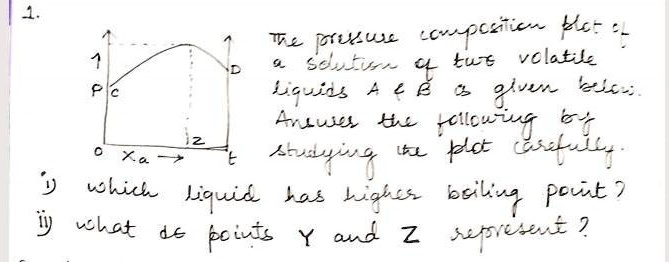 1.
The pressure composition plot of
a solution of two volatile
liquids A & B is given below.
Answer the following by
studying the plot carefully.
↑
P C
D
Z
O Xa → t
i) which liquid has higher boiling point?
ii) what do points Y and Z represent?